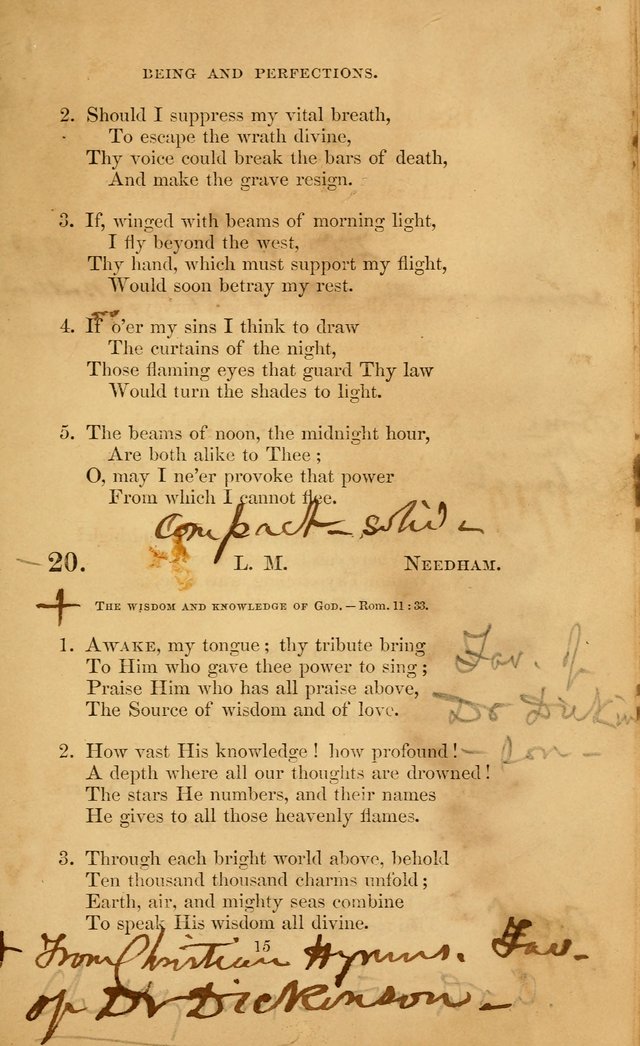 BEING AND PERFECTIONS.
2. Should I suppress my vital breath,
To escape the wrath divine,
Thy voice could break the bars of death,
And make the grave resign.
3. If, winged with beams of morning light,
I fly beyond the west,
Thy hand, which must support my flight,
Would soon betray my rest.
4. If o'er my sins I think to draw
The curtains of the night,
Those flaming eyes that guard Thy law
Would turn the shades to light.
5. The beams of noon, the midnight hour,
Are both alike to Thee;
O, may I ne'er provoke that power
From which I cannot flee.
Compact – solid –
20. L. M. NEEDHAM.
THE WISDOM AND KNOWLEDGE OF GOD. — Rom. 11 : 33.
1. AWAKE, my tongue; thy tribute bring
To Him who gave thee power to sing;
Praise Him who has all praise above,
The Source of wisdom and of love.
Fav. of
Dr Dickin
son –
2. How vast His knowledge! how profound!
A depth where all our thoughts are drowned!
The stars He numbers, and their names
He gives to all those heavenly flames.
3. Through each bright world above, behold
Ten thousand thousand charms unfold;
Earth, air, and mighty seas combine
To speak His wisdom all divine.
15
+ From Christian Hymns. Fav.
of Dr Dickinson –